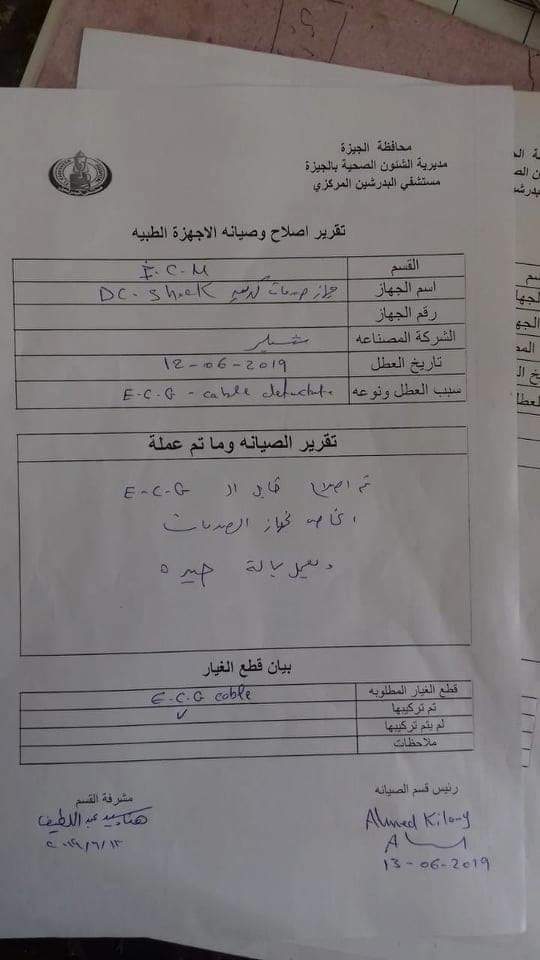 محافظة الجيزة
مديرية الشئون الصحية بالجيزة
مستشفي البدرشين المركزي
تقرير اصلاح وصيانه الاجهزة الطبيه
القسم E.C.M
اسم الجهاز جهاز صدمات DC-Shock
رقم الجهاز
الشركة المصناعه شيلر
تاريخ العطل 12-06-2019
سبب العطل ونوعه E-C-G - cable
تقرير الصيانه وما تم عملة
تم اصلاح كابل ال E-C-G
الخاص بجهاز الصدمات
ويعمل بحالة جيده
بيان قطع الغيار
قطع الغيار المطلوبه E-C-G cable
تم تركيبها ✓
لم يتم تركيبها
ملاحظات
رئيس قسم الصيانه
مشرفة القسم
Ahmed Kilany
هناء سيد عبد اللطيف
٢٠١٩/٦/١٣
13-06-2019